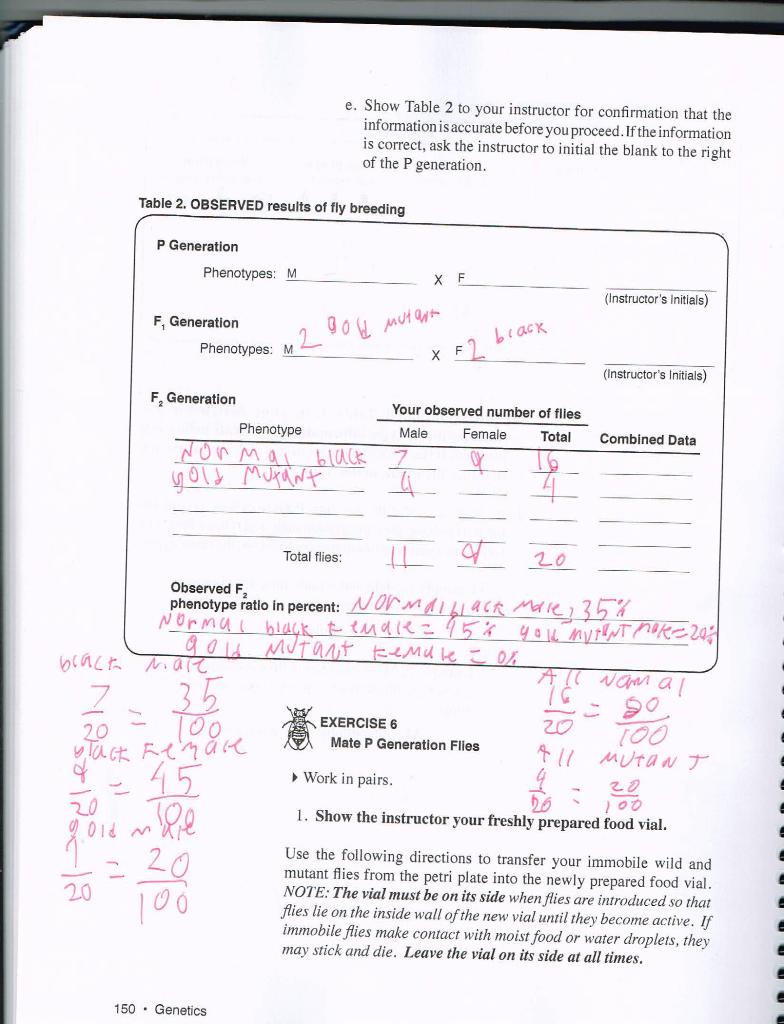 e. Show Table 2 to your instructor for confirmation that the
information is accurate before you proceed. If the information
is correct, ask the instructor to initial the blank to the right
of the P generation.
Table 2. OBSERVED results of fly breeding
P Generation
Phenotypes: M X F
(Instructor's Initials)
F1 Generation
Phenotypes: M 2 gold mutant X F 2 black
(Instructor's Initials)
F2 Generation
Your observed number of flies
Phenotype Male Female Total Combined Data
Normal black 7 9 16
gold mutant 4 4
Total flies: 11 9 20
Observed F2
phenotype ratio in percent: Normal black male, 35%
Normal black Female = 45% gold mutant male = 20%
gold mutant Female = 0%
black male
7/20 = 35/100
black Female
9/20 = 45/100
gold male
/20 = 20/100
All Normal
16/20 = 80/100
All mutant
4/20 = 20/100
EXERCISE 6
Mate P Generation Flies
▸ Work in pairs.
1. Show the instructor your freshly prepared food vial.
Use the following directions to transfer your immobile wild and
mutant flies from the petri plate into the newly prepared food vial.
NOTE: The vial must be on its side when flies are introduced so that
flies lie on the inside wall of the new vial until they become active. If
immobile flies make contact with moist food or water droplets, they
may stick and die. Leave the vial on its side at all times.
150 • Genetics